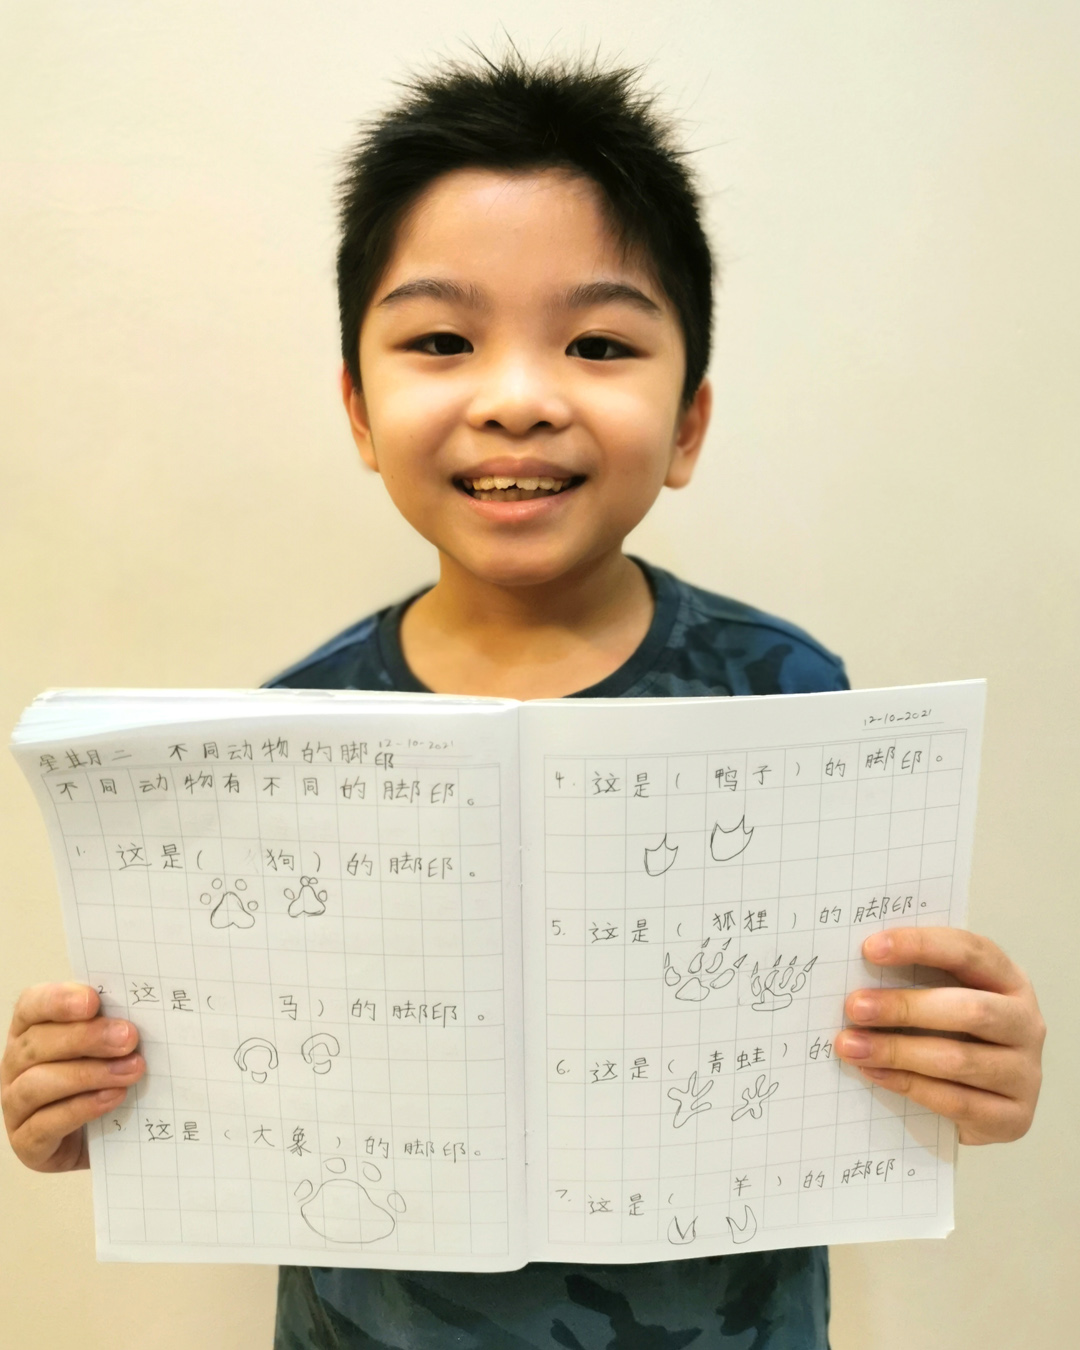 星期二 不同动物的脚印 12-10-2021
不同动物有不同的脚印。
1. 这是( 狗 )的脚印。
2. 这是( 马 )的脚印。
3. 这是(大象)的脚印。
12-10-2021
4. 这是( 鸭子 )的脚印。
5. 这是( 狐狸 )的脚印。
6. 这是( 青蛙 )的
7. 这是( 羊 )的脚印。